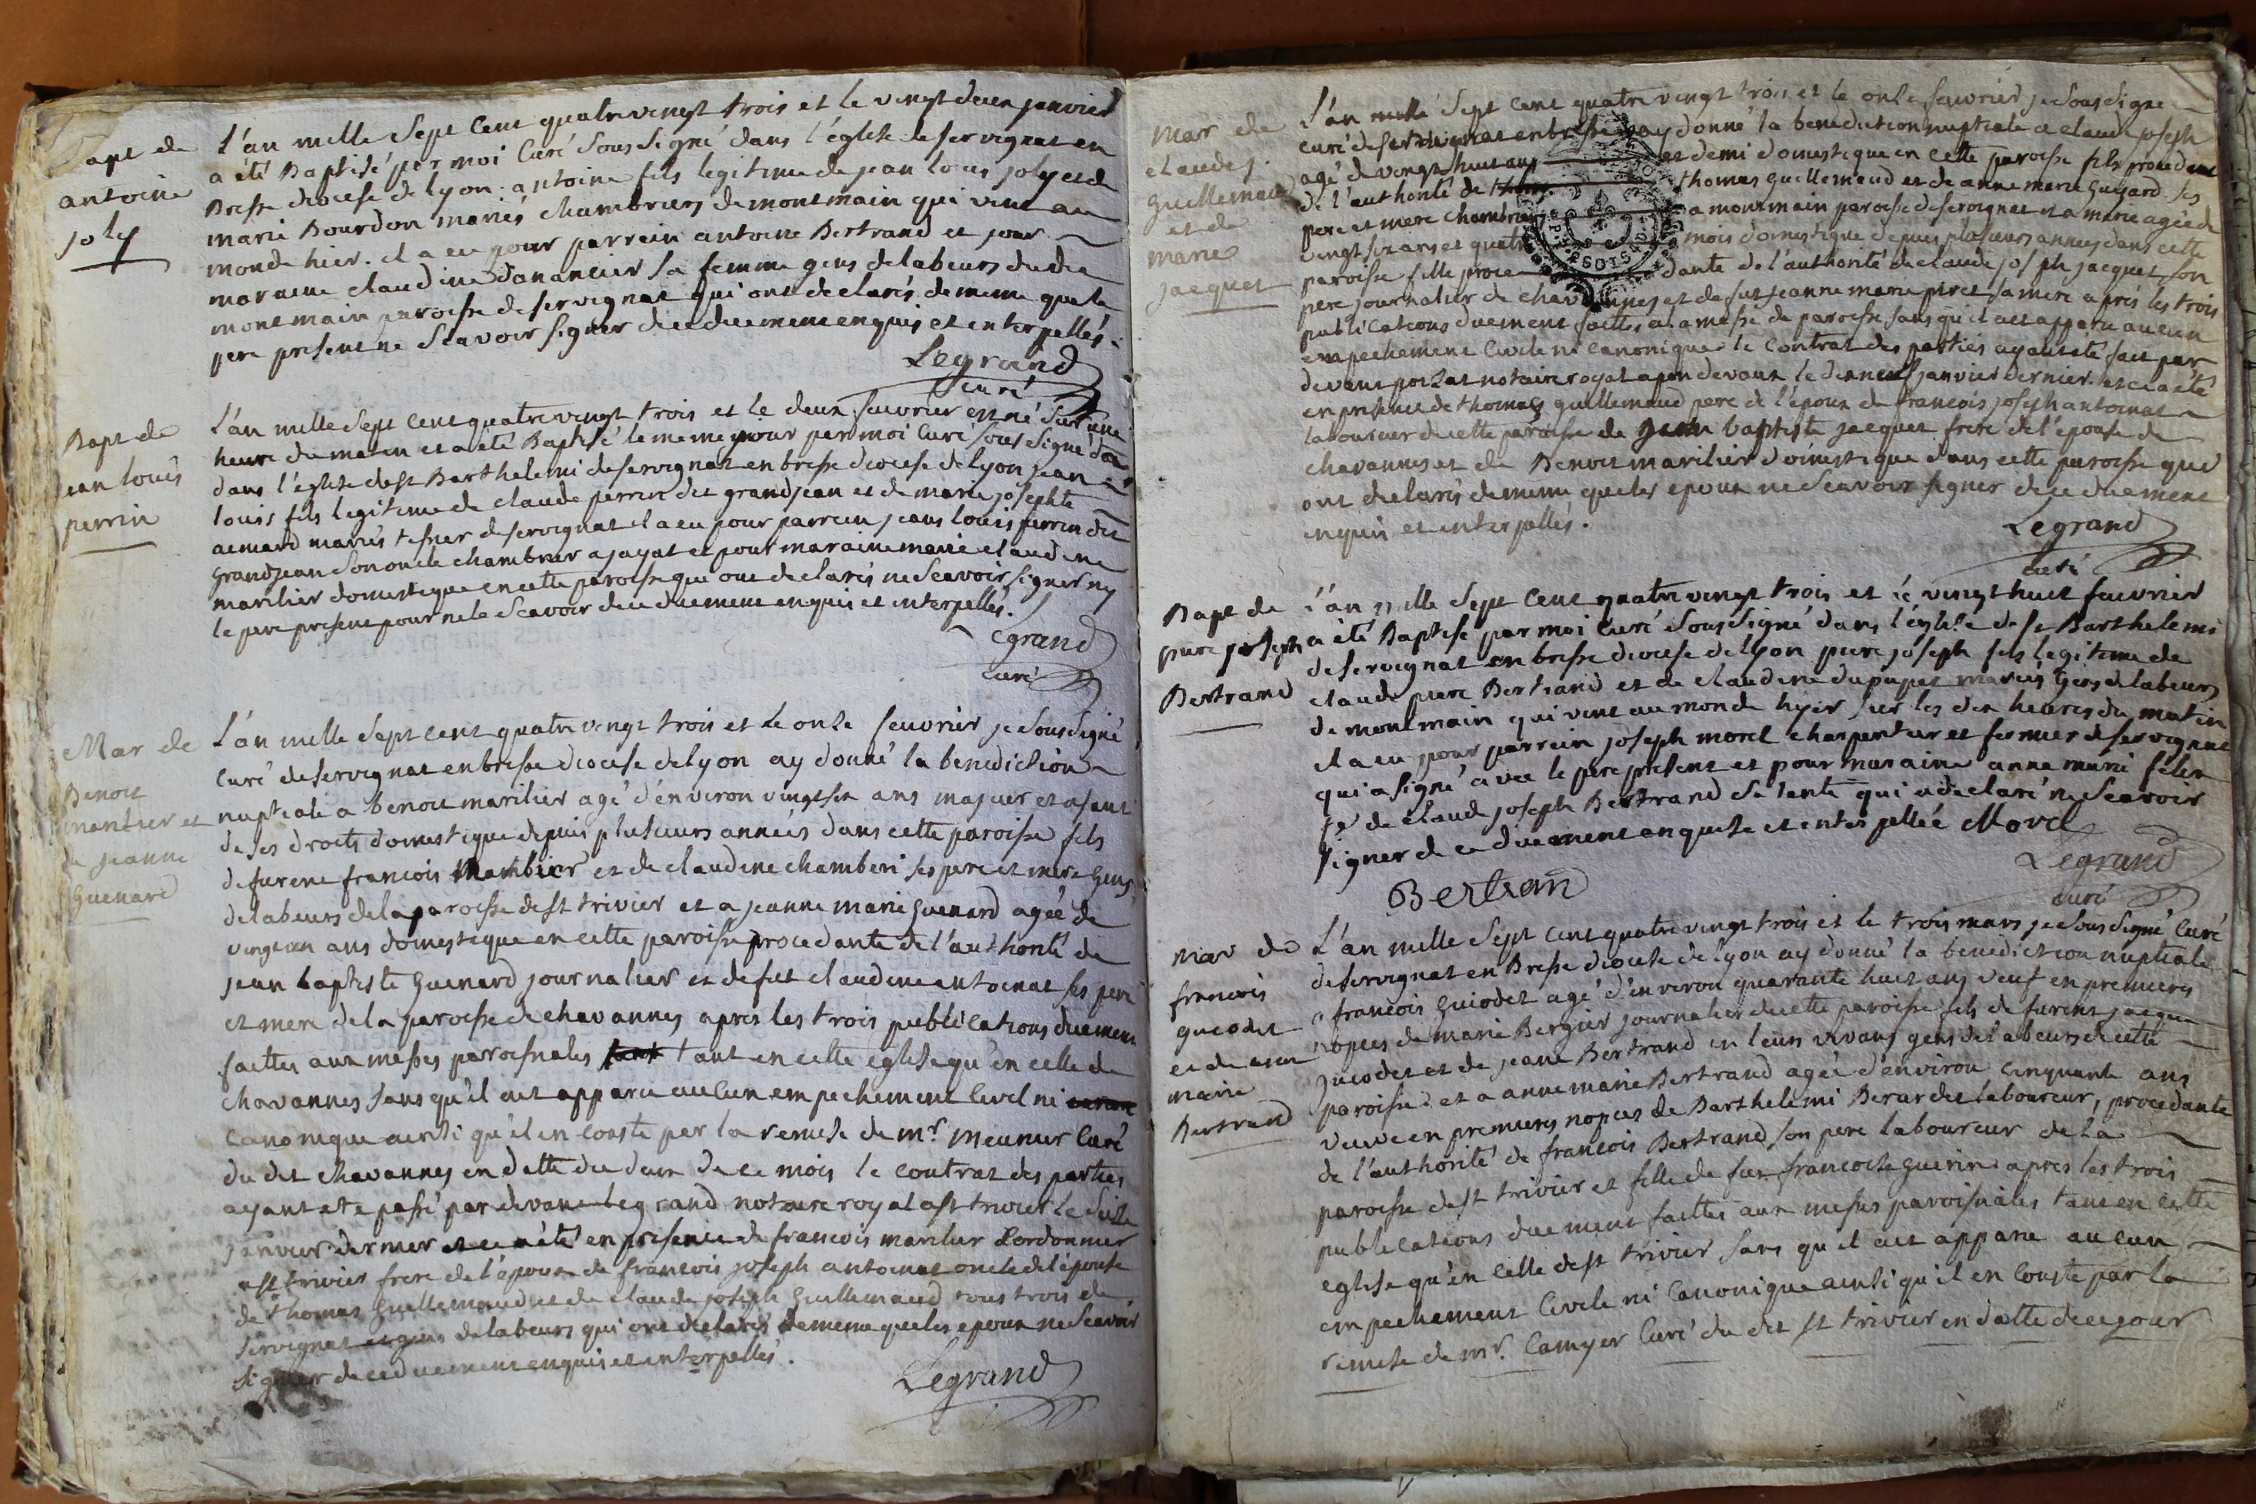 Bapt de
antoine
joly
L'an mille Sept Cent quatre vingt trois et le vingt deux janvier
a été Baptisé par moi Curé Sous Signé dans l'église de servignat en
Bresse diocese de lyon antoine fils legitime de jean louis joly et de
marie Bourdon mariés chambriers de montmain qui vint au
monde hier. il a eu pour parrein antoine Bertrand et pour
maraine claudine danancier sa femme gens de labeurs du dit
montmain paroisse de servignat qui ont declarés de meme que le
pere present ne Scavoir Signer de ce duement enquis et interpellés.
Legrand
curé
Bapt de
jean louis
perrin
L'an mille Sept Cent quatre vingt trois et le deux feuvrier est né Sur une
heure du matin et a été Baptisé le meme jour par moi Curé Sous Signé
dans l'église de st Barthelemi de servignat en bresse diocese de lyon jean
louis fils legitime de claude perrin dit grandjean et de marie josephte
aemard mariés de servignat il a eu pour parrein jean louis perrin dit
grandjean Son oncle chambrier a jayat et pour maraine marie claudine
marilier domestique en cette paroisse qui ont declarés ne Scavoir Signer ny
le pere present pour ne le Scavoir de ce duement enquis et interpellés.
Legrand
curé
Mar de
Benoit
marilier et
de jeanne
Guenard
L'an mille Sept cent quatre vingt trois et le onze feuvrier je Sous Signé
Curé de servignat en bresse diocese de lyon ay donné la benediction
nuptiale a benoit marilier agé d'environ vingt six ans majeur et usant
de ses droits domestique depuis plusieurs années dans cette paroisse fils
de furent francois marilier et de claudine chamberi ses pere et mere gens
de labeurs de la paroisse de st trivier et a jeanne marie guenard agée de
vingt un ans domestique en cette paroisse procedante de l'authorité de
jean baptiste guenard journalier et de fut claudine antoinat ses pere
et mere de la paroisse de chavannes apres les trois publications duement
faittes aux messes paroissiales tant en cette eglise qu'en celle de
chavannes sans qu'il ait apparu aucun empechement Civil ni
Canonique ainsi qu'il en conste par la remise de mr. meunier Curé
du dit chavannes en datte du deux de ce mois le contrat des parties
ayant été passé par devant legrand notaire royal a st trivier le seize
janvier dernier et ce a été en presence de francois marilier Cordonnier
a st trivier frere de l'epoux de francois joseph antoinat oncle de l'épouse
de thomas guillemaud et de claude joseph guillemaud tous trois de
servignat et gens de labeurs qui ont declarés de meme que les epoux ne Scavoir
Signer de ce duement enquis et interpellés.
Legrand
mar de
claude j.
Guillemaud
et de
marie
jacquet
L'an mille Sept Cent quatre vingt trois et le onze feuvrier je Sous Signé
curé de servignat en bresse ay donné la benediction nuptiale a claude joseph
agé de vingt huit ans et demi domestique en cette paroisse fils procedant
de l'authorité de thomas guillemaud et de anne marie guyard ses
pere et mere chambriers a montmain paroisse de servignat et a marie agée de
vingt six ans et quatre mois domestique depuis plusieurs années dans cette
paroisse fille procedante de l'authorité de claude joseph jacquet son
pere journalier de chavannes et de fut jeanne marie piret sa mere après les trois
publications duement faittes a la messe de paroisse sans qu'il ait apparu aucun
empechement Civile ni Canonique le Contrat des parties ayant été fait par
devant notaire royal a pondevaux le janvier dernier. et ce a été
en presence de thomas guillemaud pere de l'époux de francois joseph antoinat
laboureur de cette paroisse de jean baptiste jacquet frere de l'epouse de
chavannes et de Benoit marilier domestique dans cette paroisse qui
ont declarés de meme que les epoux ne Scavoir signer de ce duement
enquis et interpellés.
Legrand
curé
Bapt de
piere joseph
Bertrand
L'an mille Sept Cent quatre vingt trois et le vingt huit feuvrier
a été Baptisé par moi Curé Sous Signé dans l'église de st Barthelemi
de servignat en bresse diocese de lyon piere joseph fils legitime de
claude piere Bertrand et de claudine dupupet mariés gens de labeurs
de montmain qui vint au monde hyer Sur les dix heures du matin
il a eu pour parrein joseph morel charpentier et fermier de servignat
qui a signé avec le pere present et pour maraine anne marie félix
fe de claude joseph Bertrand Sa tante qui a declaré ne Scavoir
signer de ce duement enquise et interpellée Morel
Legrand
curé
Bertran
mar de
francois
guiodet
et de anne
marie
Bertrand
L'an mille Sept Cent quatre vingt trois et le trois mars je Sous Signé Curé
de servignat en Bresse diocese de lyon ay donné la benediction nuptiale
a francois guiodet agé d'environ quarante huit ans veuf en premieres
nopces de marie Bergier journalier de cette paroisse fils de furent jacque
guiodet et de jeane Bertrand en leurs vivans gens de labeurs de cette
paroisse. et a anne marie Bertrand agée d'environ cinquante ans
veuve en premieres nopces de Barthelemi Berardet laboureur, procedante
de l'authorité de francois Bertrand son pere laboureur de la
paroisse de st trivier et fille de fut francoise guerin. apres les trois
publications duement faittes aux messes paroissiales tant en cette
eglise qu'en celle de st trivier sans qu'il ait apparu aucun
empechement Civile ni Canonique ainsi qu'il en Conste par la
remise de mr. Camyer Curé du dit st trivier en datte de ce jour